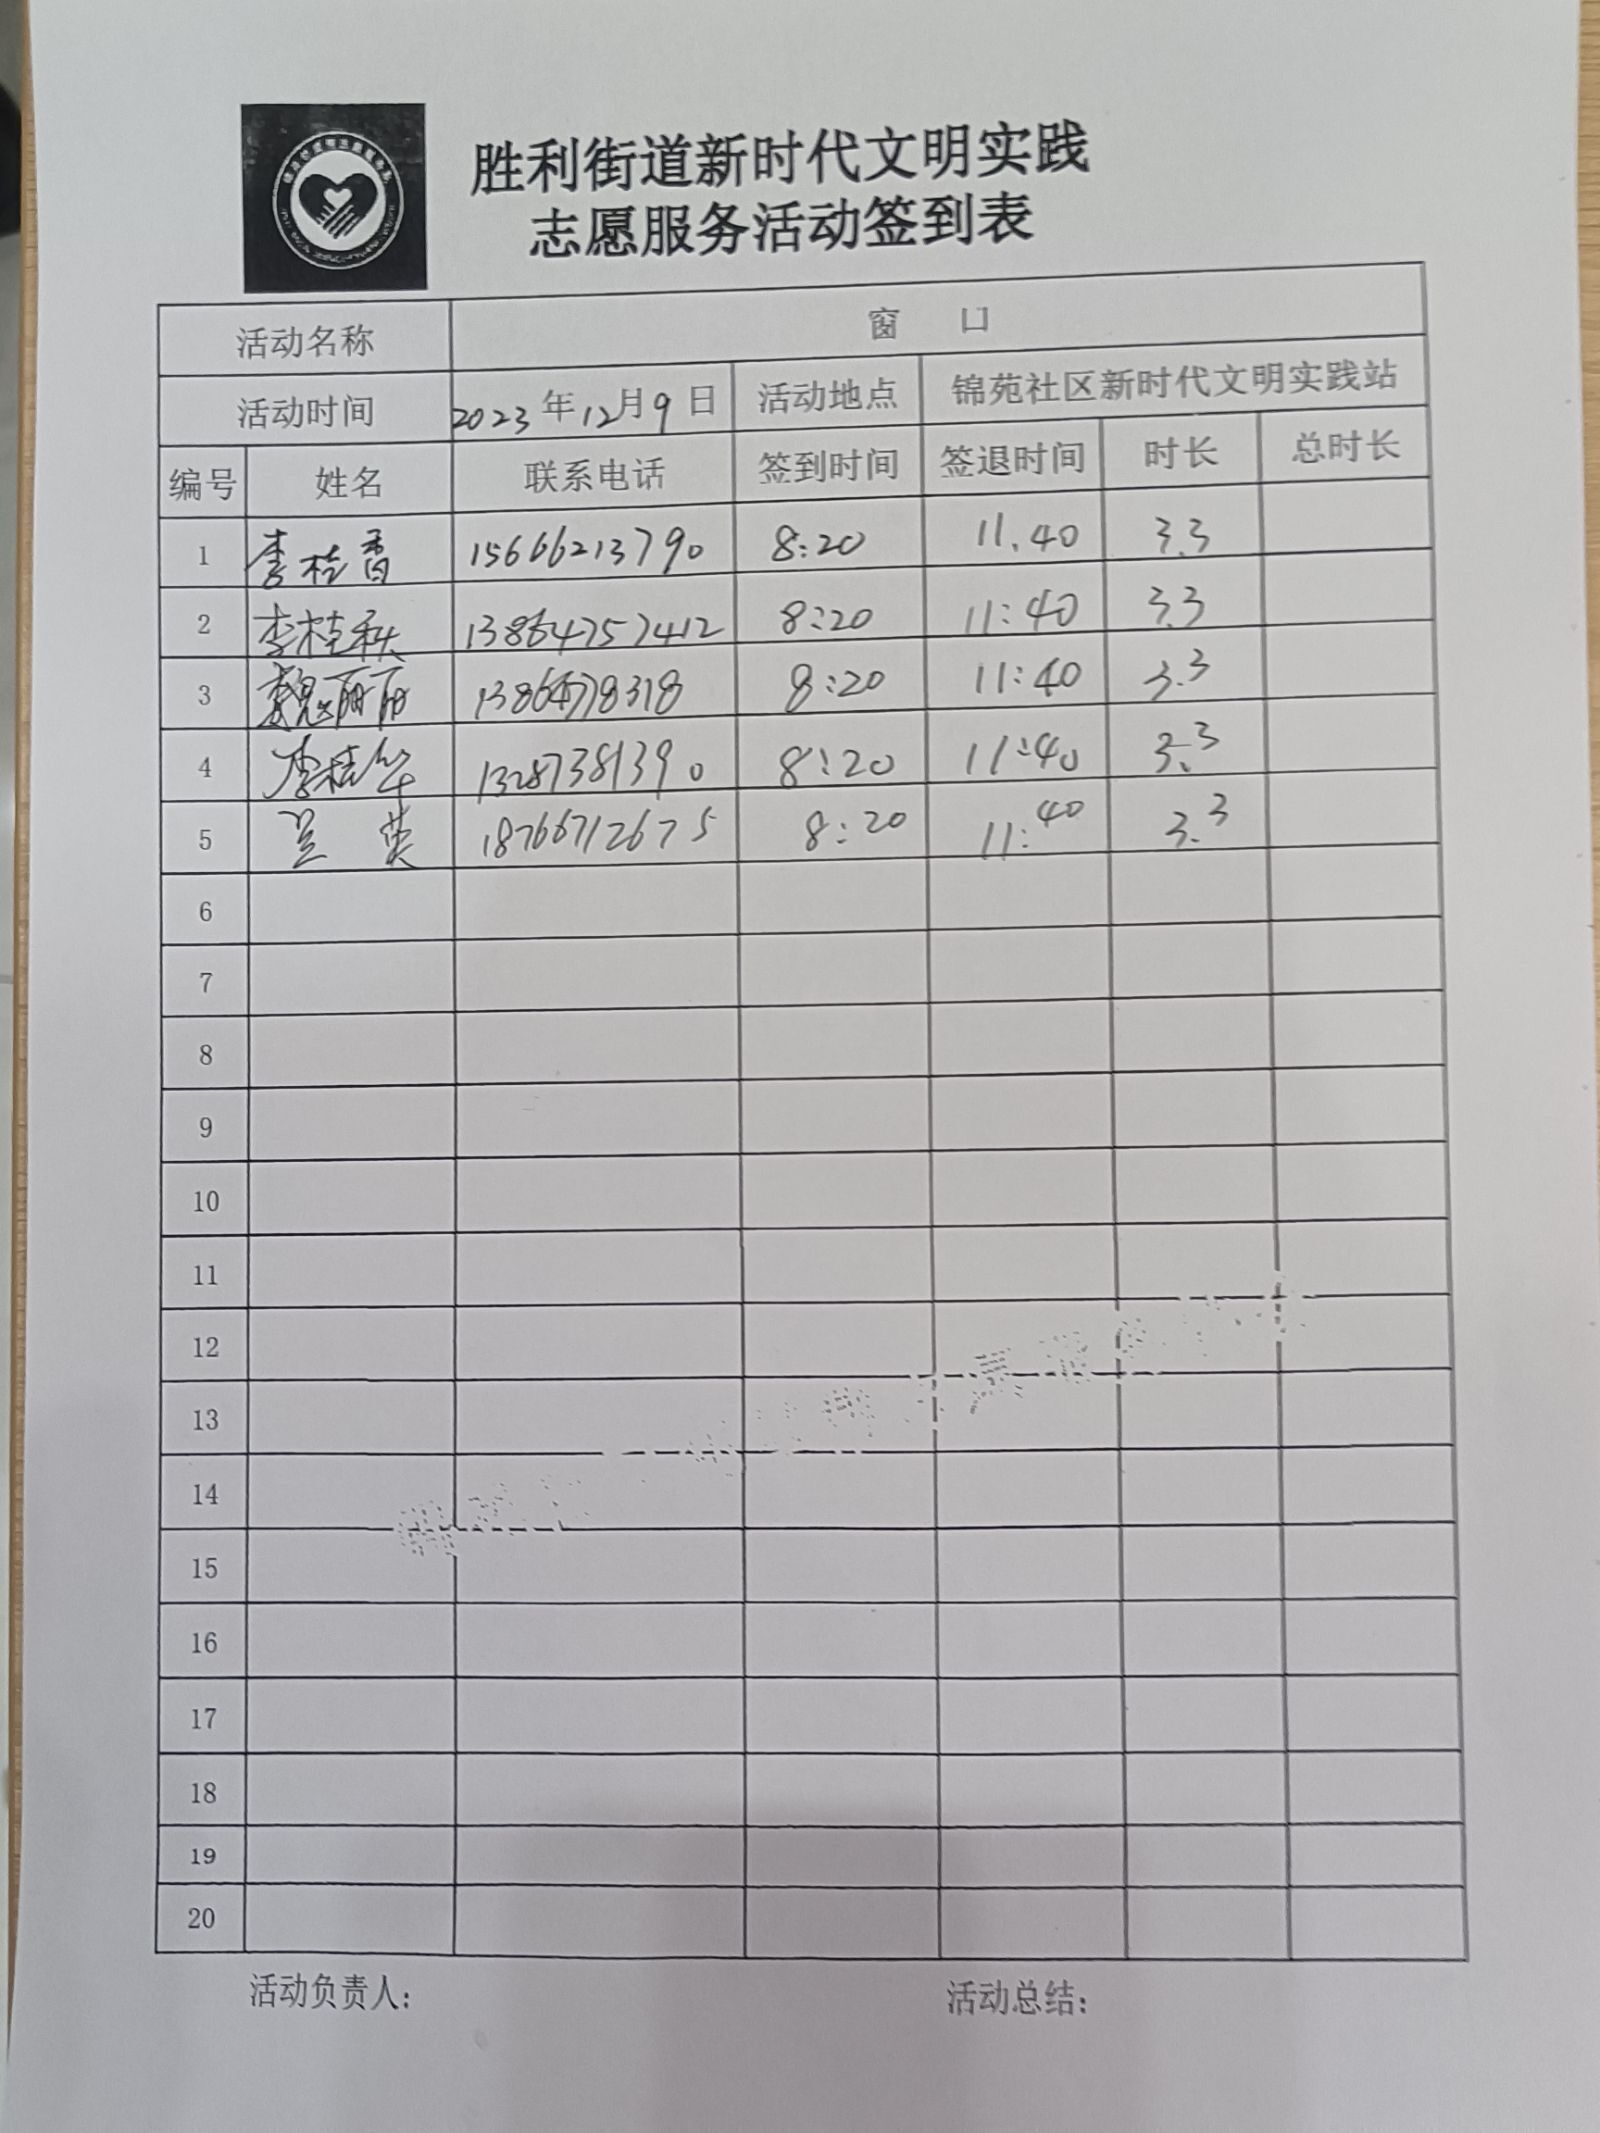 胜利街道新时代文明实践
志愿服务活动签到表
活动名称 窗 口
活动时间 2023年12月9日 活动地点 锦苑社区新时代文明实践站
编号 姓名 联系电话 签到时间 签退时间 时长 总时长
1 李桂香 15666213790 8:20 11.40 3.3
2 李桂秋 13864757412 8:20 11:40 3.3
3 魏丽丽 13864778318 8:20 11:40 3.3
4 李桂华 13287381390 8:20 11:40 3.3
5 兰英 18766712675 8:20 11:40 3.3
6
7
8
9
10
11
12
13
14
15
16
17
18
19
20
活动负责人: 活动总结: